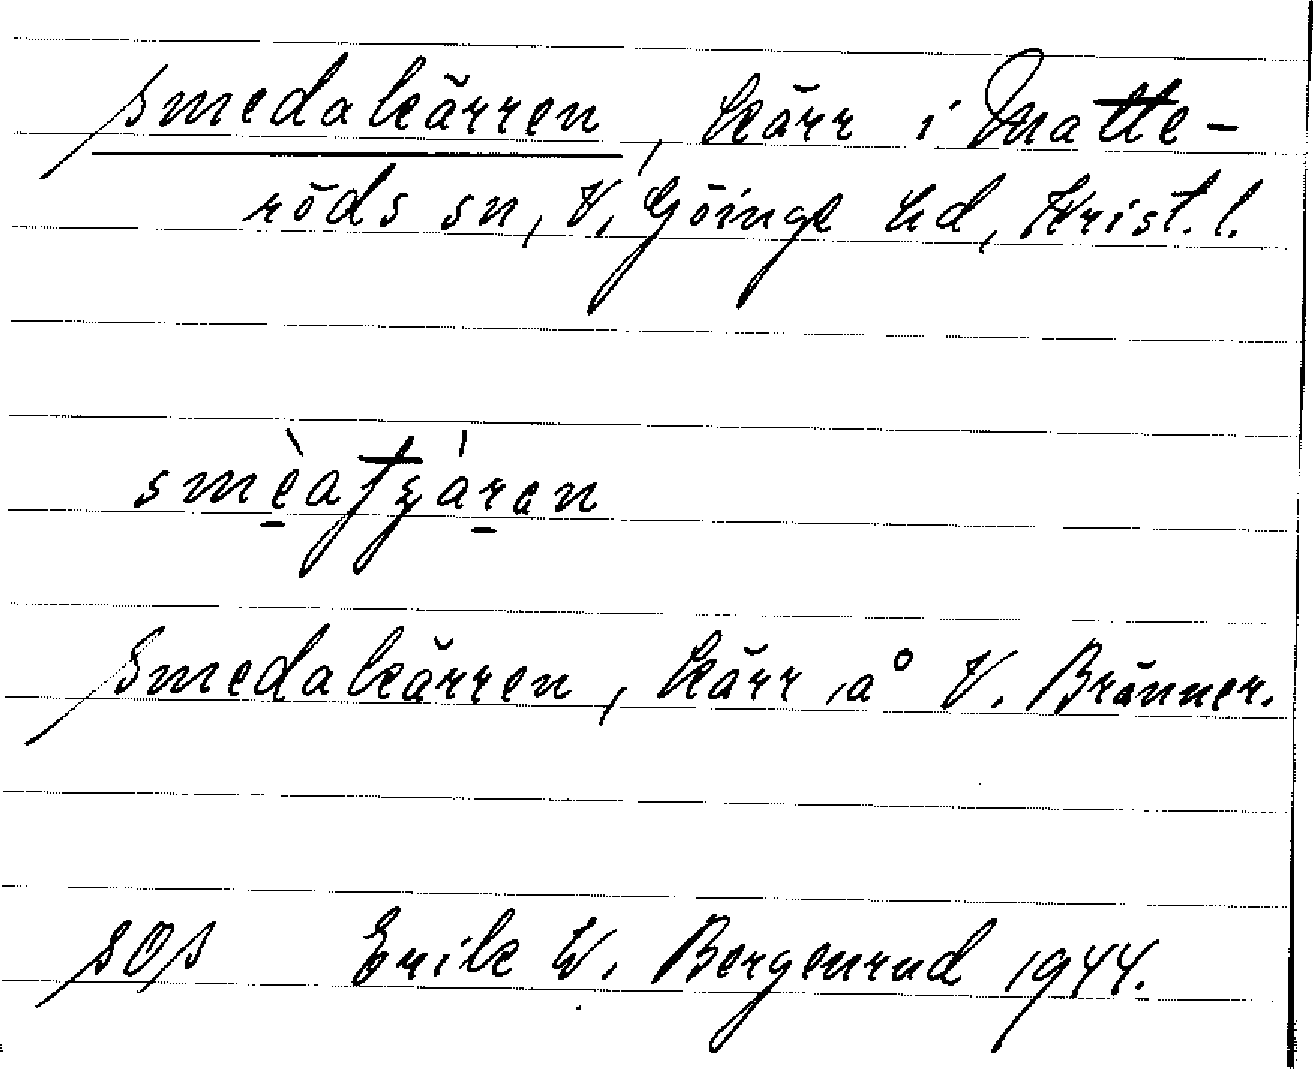 Smedakärren, kärr i Matte-
röds sn, V. Göinge hd, Krist. l.
Smedakärren, kärr å V. Brönner.
SOS Erik W. Bergenrud 1944.